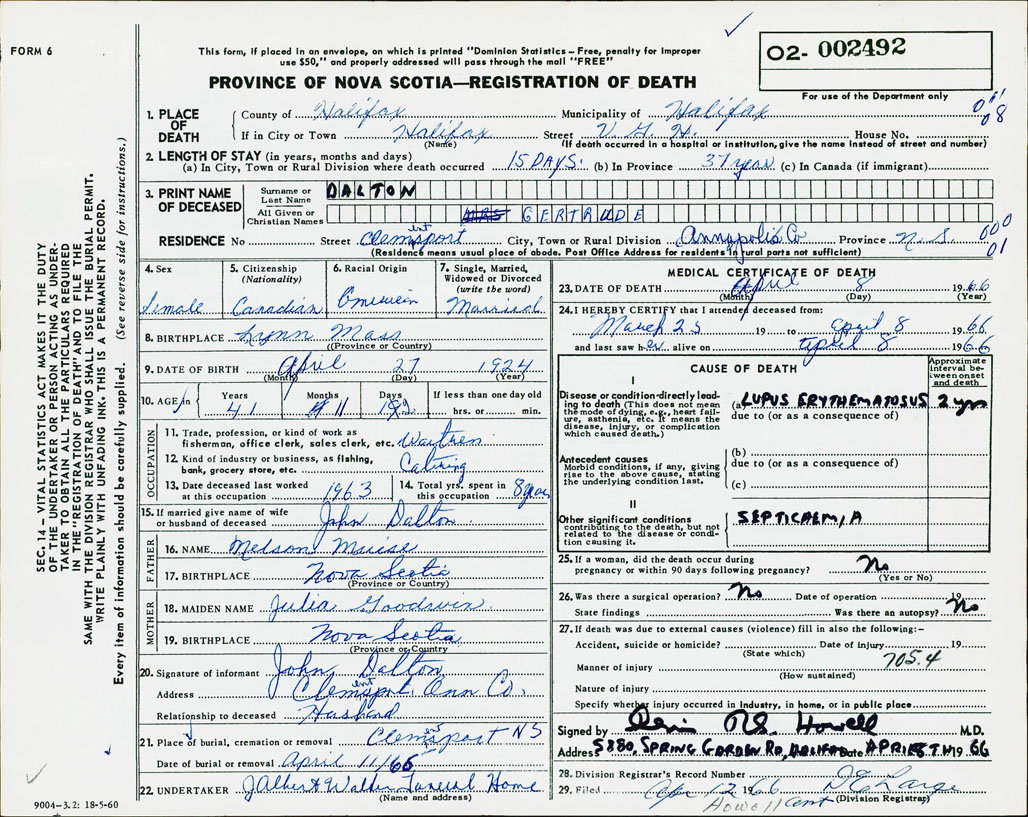 FORM 6
This form, if placed in an envelope, on which is printed "Dominion Statistics – Free, penalty for improper
use $50," and properly addressed will pass through the mail "FREE"
O2- 002492
PROVINCE OF NOVA SCOTIA—REGISTRATION OF DEATH
For use of the Department only
1. PLACE OF DEATH
County of Halifax Municipality of Halifax
08
If in City or Town Halifax Street V. G. H. House No.
(Name) (If death occurred in a hospital or institution, give the name instead of street and number)
2. LENGTH OF STAY (in years, months and days)
(a) In City, Town or Rural Division where death occurred 15 DAYS. (b) In Province 37 year (c) In Canada (if immigrant)
3. PRINT NAME OF DECEASED
Surname or Last Name DALTON
All Given or Christian Names MRS GERTRUDE
RESIDENCE No Street Clementsport City, Town or Rural Division Annapolis Co Province N.S.
000
01
(Residence means usual place of abode. Post Office Address for residents of rural parts not sufficient)
4. Sex
Female
5. Citizenship
(Nationality)
Canadian
6. Racial Origin
7. Single, Married,
Widowed or Divorced
(write the word)
Married
8. BIRTHPLACE Lynn Mass
(Province or Country)
9. DATE OF BIRTH April 27 1924
(Month) (Day) (Year)
10. AGE in Years Months Days If less than one day old
41 11 hrs. or min.
OCCUPATION
11. Trade, profession, or kind of work as
fisherman, office clerk, sales clerk, etc. Waitress
12. Kind of industry or business, as fishing,
bank, grocery store, etc. Catering
13. Date deceased last worked
at this occupation 1963
14. Total yrs. spent in
this occupation 8 years
15. If married give name of wife
or husband of deceased John Dalton
FATHER
16. NAME Melson Muise
17. BIRTHPLACE Nova Scotia
(Province or Country)
MOTHER
18. MAIDEN NAME Julia Goodwin
19. BIRTHPLACE Nova Scotia
(Province or Country
20. Signature of informant John Dalton
Address Clementsport, Ann Co.
Relationship to deceased Husband
21. Place of burial, cremation or removal Clementsport NS
Date of burial or removal April 11/66
22. UNDERTAKER J Albert Walker Funeral Home
(Name and address)
MEDICAL CERTIFICATE OF DEATH
23. DATE OF DEATH April 8 1966
(Month) (Day) (Year)
24. I HEREBY CERTIFY that I attended deceased from:
March 25 19 to April 8 1966
and last saw her alive on April 8 1966
CAUSE OF DEATH
Approximate
interval be-
tween onset
and death
I
Disease or condition directly lead-
ing to death (This does not mean
the mode of dying, e.g., heart fail-
ure, asthenia, etc. It means the
disease, injury, or complication
which caused death.)
(a) LUPUS ERYTHEMATOSUS 2 yrs
due to (or as a consequence of)
Antecedent causes
Morbid conditions, if any, giving
rise to the above cause, stating
the underlying condition last.
(b)
due to (or as a consequence of)
(c)
II
Other significant conditions
contributing to the death, but not
related to the disease or condi-
tion causing it.
SEPTICAEMIA
25. If a woman, did the death occur during
pregnancy or within 90 days following pregnancy? No
(Yes or No)
26. Was there a surgical operation? No Date of operation 19
State findings Was there an autopsy? No
27. If death was due to external causes (violence) fill in also the following:-
Accident, suicide or homicide? Date of injury 19
(State which)
705.4
Manner of injury
(How sustained)
Nature of injury
Specify whether injury occurred in industry, in home, or in public place
Signed by Howell M.D.
Address 5880, SPRING GARDEN RD, HALIFAX Date APRIL 8TH 19 66
28. Division Registrar's Record Number
29. Filed Apr 12 1966 D E Large
(Division Registrar)
Howell Cent
SEC. 14 – VITAL STATISTICS ACT MAKES IT THE DUTY
OF THE UNDERTAKER OR PERSON ACTING AS UNDER-
TAKER TO OBTAIN ALL THE PARTICULARS REQUIRED
IN THE "REGISTRATION OF DEATH" AND TO FILE THE
SAME WITH THE DIVISION REGISTRAR WHO SHALL ISSUE THE BURIAL PERMIT.
WRITE PLAINLY WITH UNFADING INK. THIS IS A PERMANENT RECORD.
Every item of information should be carefully supplied. (See reverse side for instructions.)
9004-3.2: 18-5-60